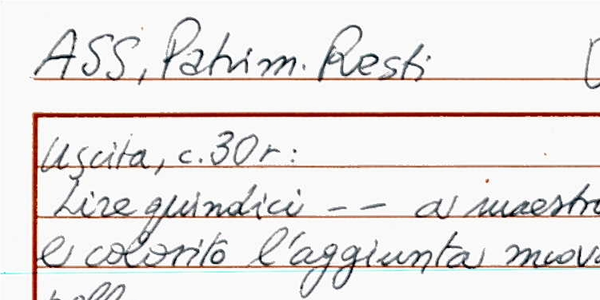 ASS, Patrim. Resti
Uscita, c. 30r:
Lire quindici -- a maestro
e colorito l'aggiunta nuova